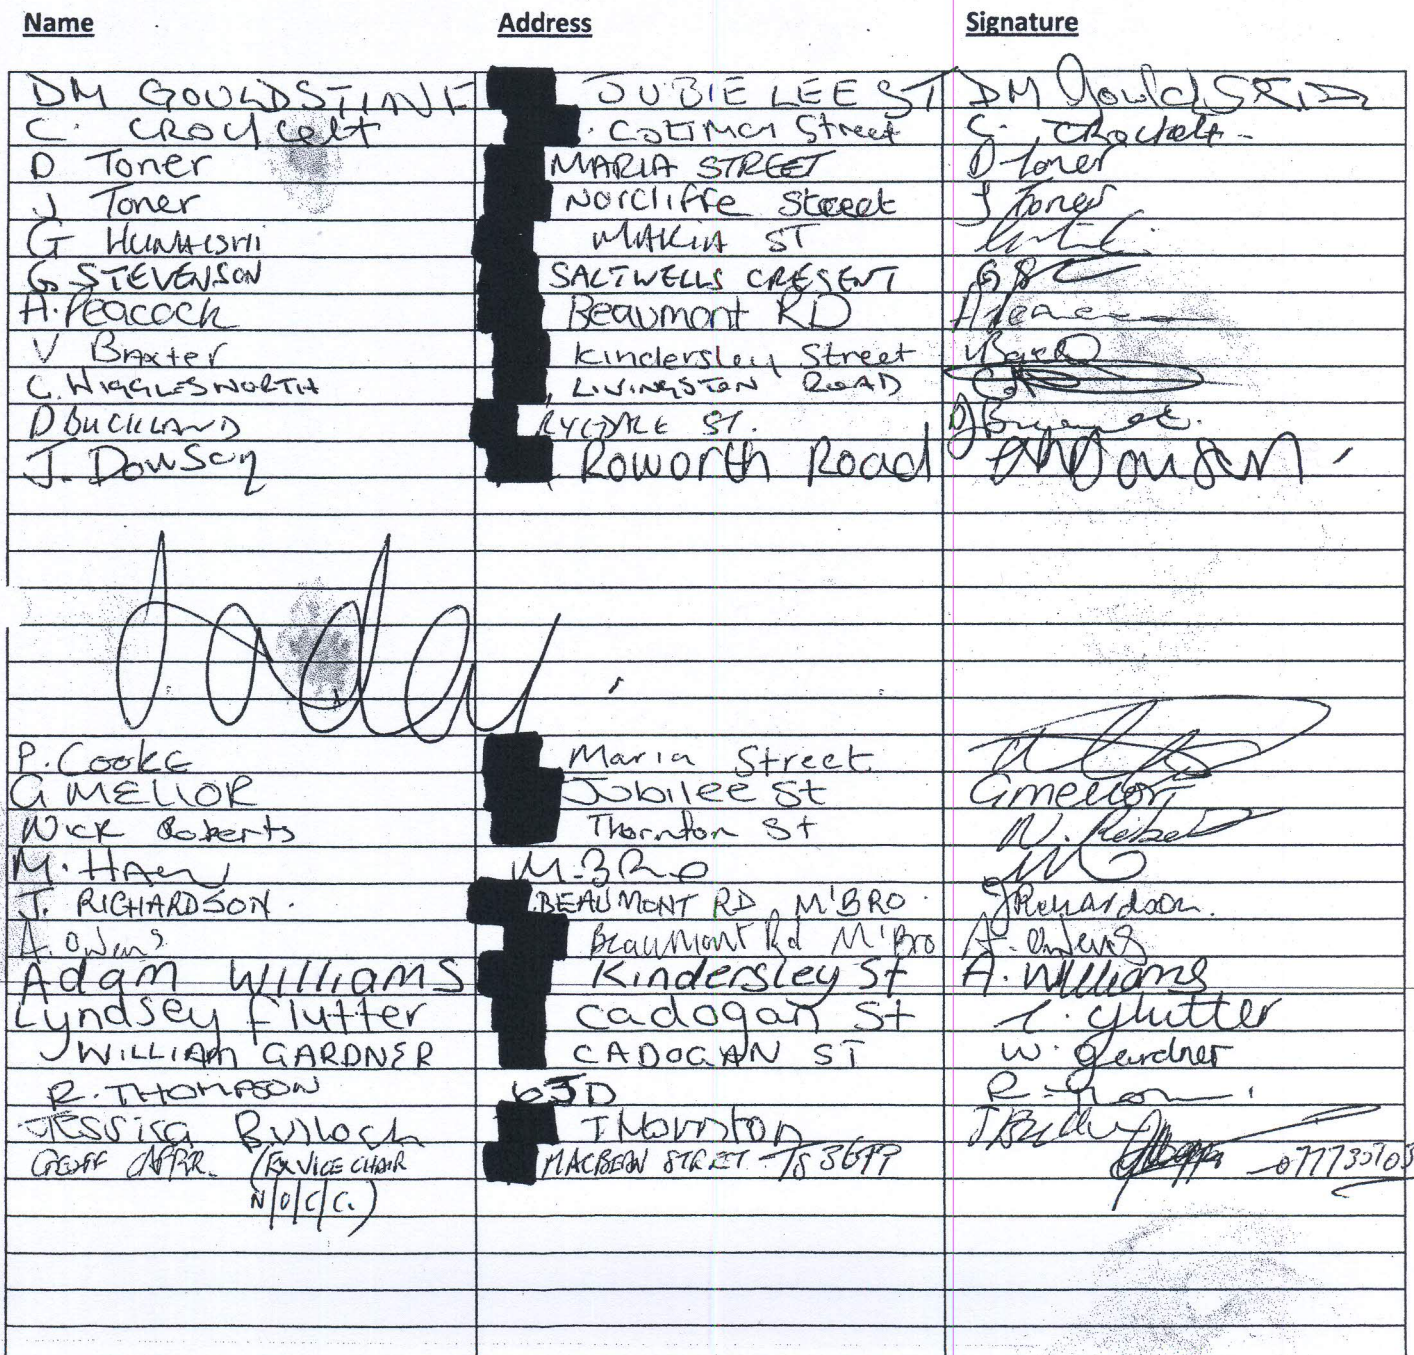 Name Address Signature
DM GOULDSTINE JUBIE LEE ST DM Gouldstin
C. CROCKett Street C. CRockett
D Toner MARIA STREET D Toner
J Toner Norcliffe Street J Toner
G MARIA ST
G STEVENSON SALTWELLS CRESENT GS
A. Peacock Beaumont RD
V Baxter Kindersley Street
C. WIGGLESWORTH LIVINGSTON ROAD
D BUCKLAND ST.
J. Dowson Roworth Road Dowson
P. Cooke Maria Street
G MELLOR Jubilee St G mellor
Nick Roberts Thornton St N.
M. M.BRO
J. RICHARDSON. BEAUMONT RD M'BRO. J Richardson.
A. Owens Beaumont Rd M'Bro A. Owens
Adam Williams Kindersley St A. Williams
Lyndsey Flutter Cadogan St L. Flutter
WILLIAM GARDNER CADOGAN ST W. Gardner
R. THOMPSON 6JD R.
JESSICA Bullock Thornton
GEOFF (EX VICE CHAIR MACBEAN STREET TS3
N/O/C/C.)